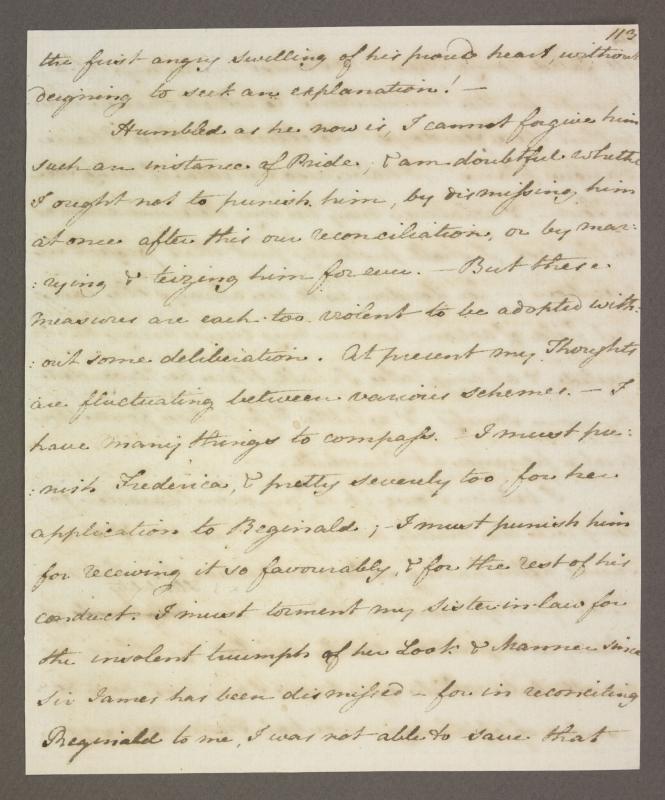 113
the first angry swelling of his proud heart, without
deigning to seek an explanation! —
Humbled as he now is, I cannot forgive him
such an instance of Pride; & am doubtful whethe
I ought not to punish him, by dismissing him
at once after this our reconciliation, or by mar:
:rying & teizing him for ever. — But these
measures are each too violent to be adopted with:
:out some deliberation. At present my Thoughts
are fluctuating between various schemes. — I
have many things to compass. — I must pu:
:nish Frederica, & pretty severely too, for her
application to Reginald; — I must punish him
for receiving it so favourably, & for the rest of his
conduct. I must torment my Sister-in-law for
the insolent triumph of her Look & Manner since
Sir James has been dismissed — for in reconciling
Reginald to me, I was not able to save that